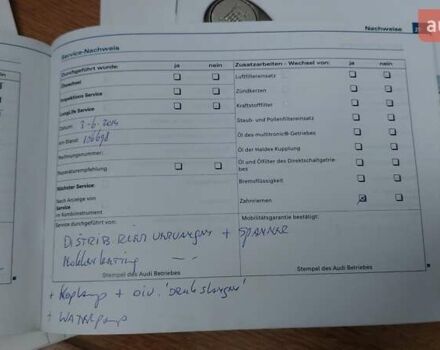 Nachweise
Service-Nachweis
Durchgeführt wurde: ja nein
Zusatzarbeiten - Wechsel von: ja nein
Ölwechsel
Luftfiltereinsatz
Inspektions Service
Zündkerzen
LongLife Service
Kraftstofffilter
Datum: 2-6-2014
Staub- und Pollenfiltereinsatz
km-Stand:
Öl des multitronic® Getriebes
Rechnungsnummer:
Öl der Haldex Kupplung
Reparaturempfehlung
Öl und Ölfilter des Direktschaltgetrie-
bes
Nächster Service:
Bremsflüssigkeit
Nach Anzeige von
Service
im Kombiinstrument
Zahnriemen
Service durchgeführt von:
Mobilitätsgarantie bestätigt:
DISTRIB RIEM + SPANNER
Stempel des Audi Betriebes
Stempel des Audi Betriebes
+ DIV.
+ WATERpomp